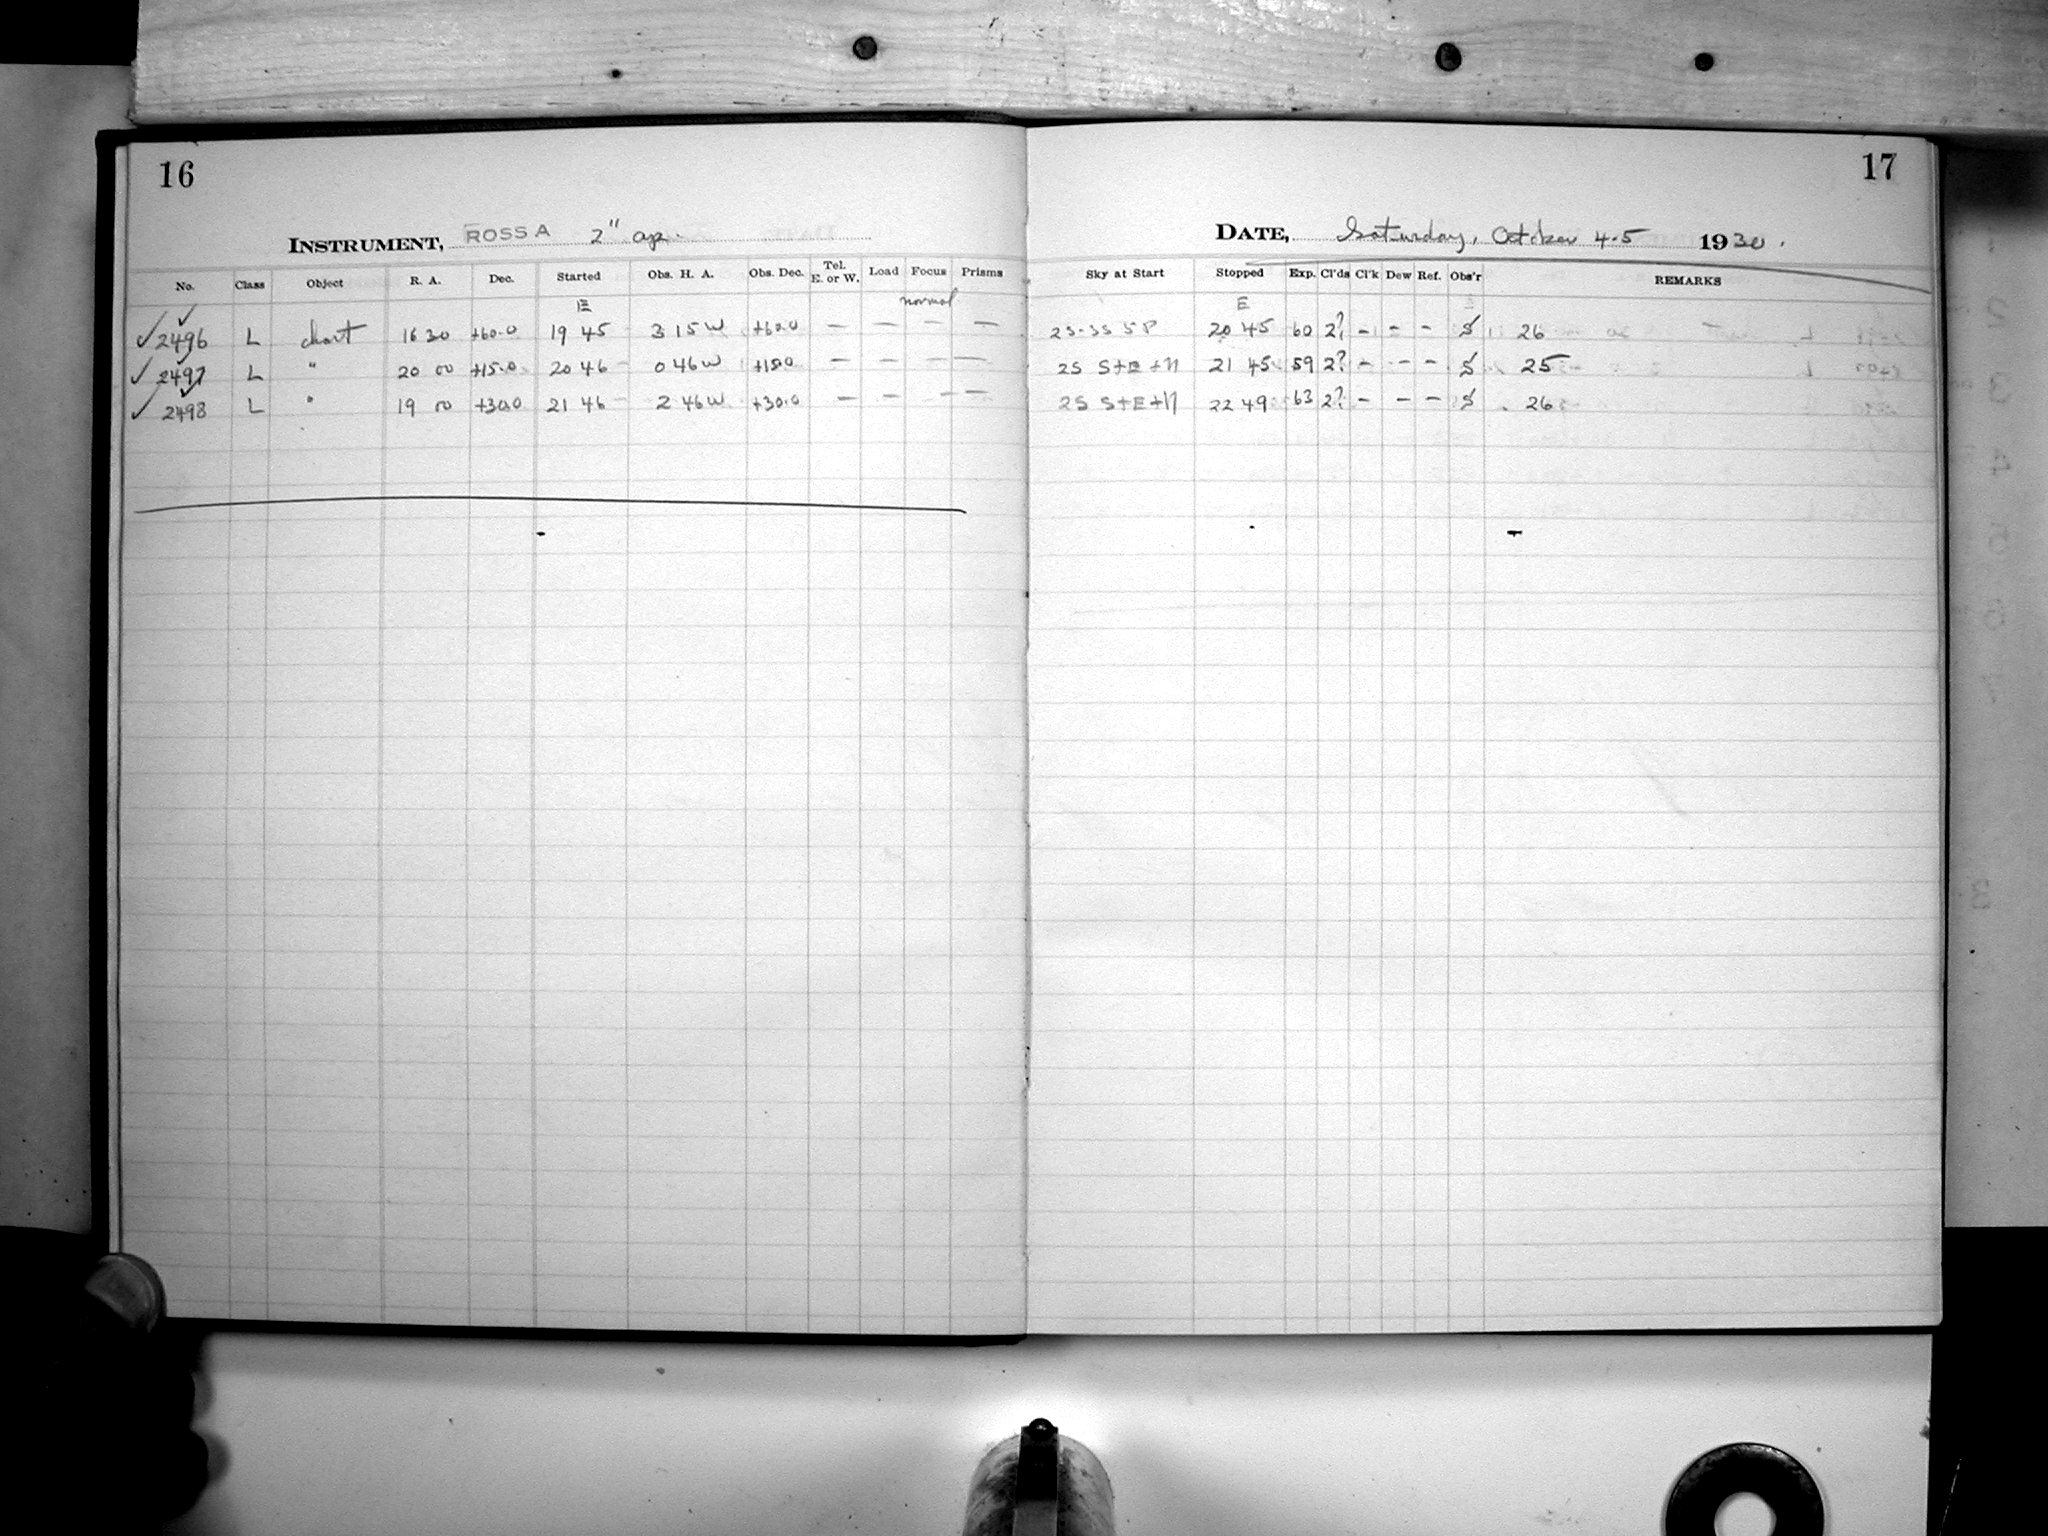 16
INSTRUMENT, ROSS A 2" ap.
No. Class Object R. A. Dec. Started Obs. H. A. Obs. Dec. Tel. E. or W. Load Focus Prisms
E normal
✓ 2496 L chart 16 30 +60.0 19 45 3 15 W +60.0 — — — —
✓ 2497 L " 20 00 +15.0 20 46 0 46 W +15.0 — — — —
✓ 2498 L " 19 00 +30.0 21 46 2 46 W +30.0 — — — —
17
DATE, Saturday, October 4-5 1930.
Sky at Start Stopped Exp. Cl'ds Cl'k Dew Ref. Obs'r REMARKS
E
2S-3S SP 20 45 60 2? - - - S 26
2S S+E+N 21 45 59 2? - - - S 25
2S S+E+N 22 49 63 2? - - - S 26